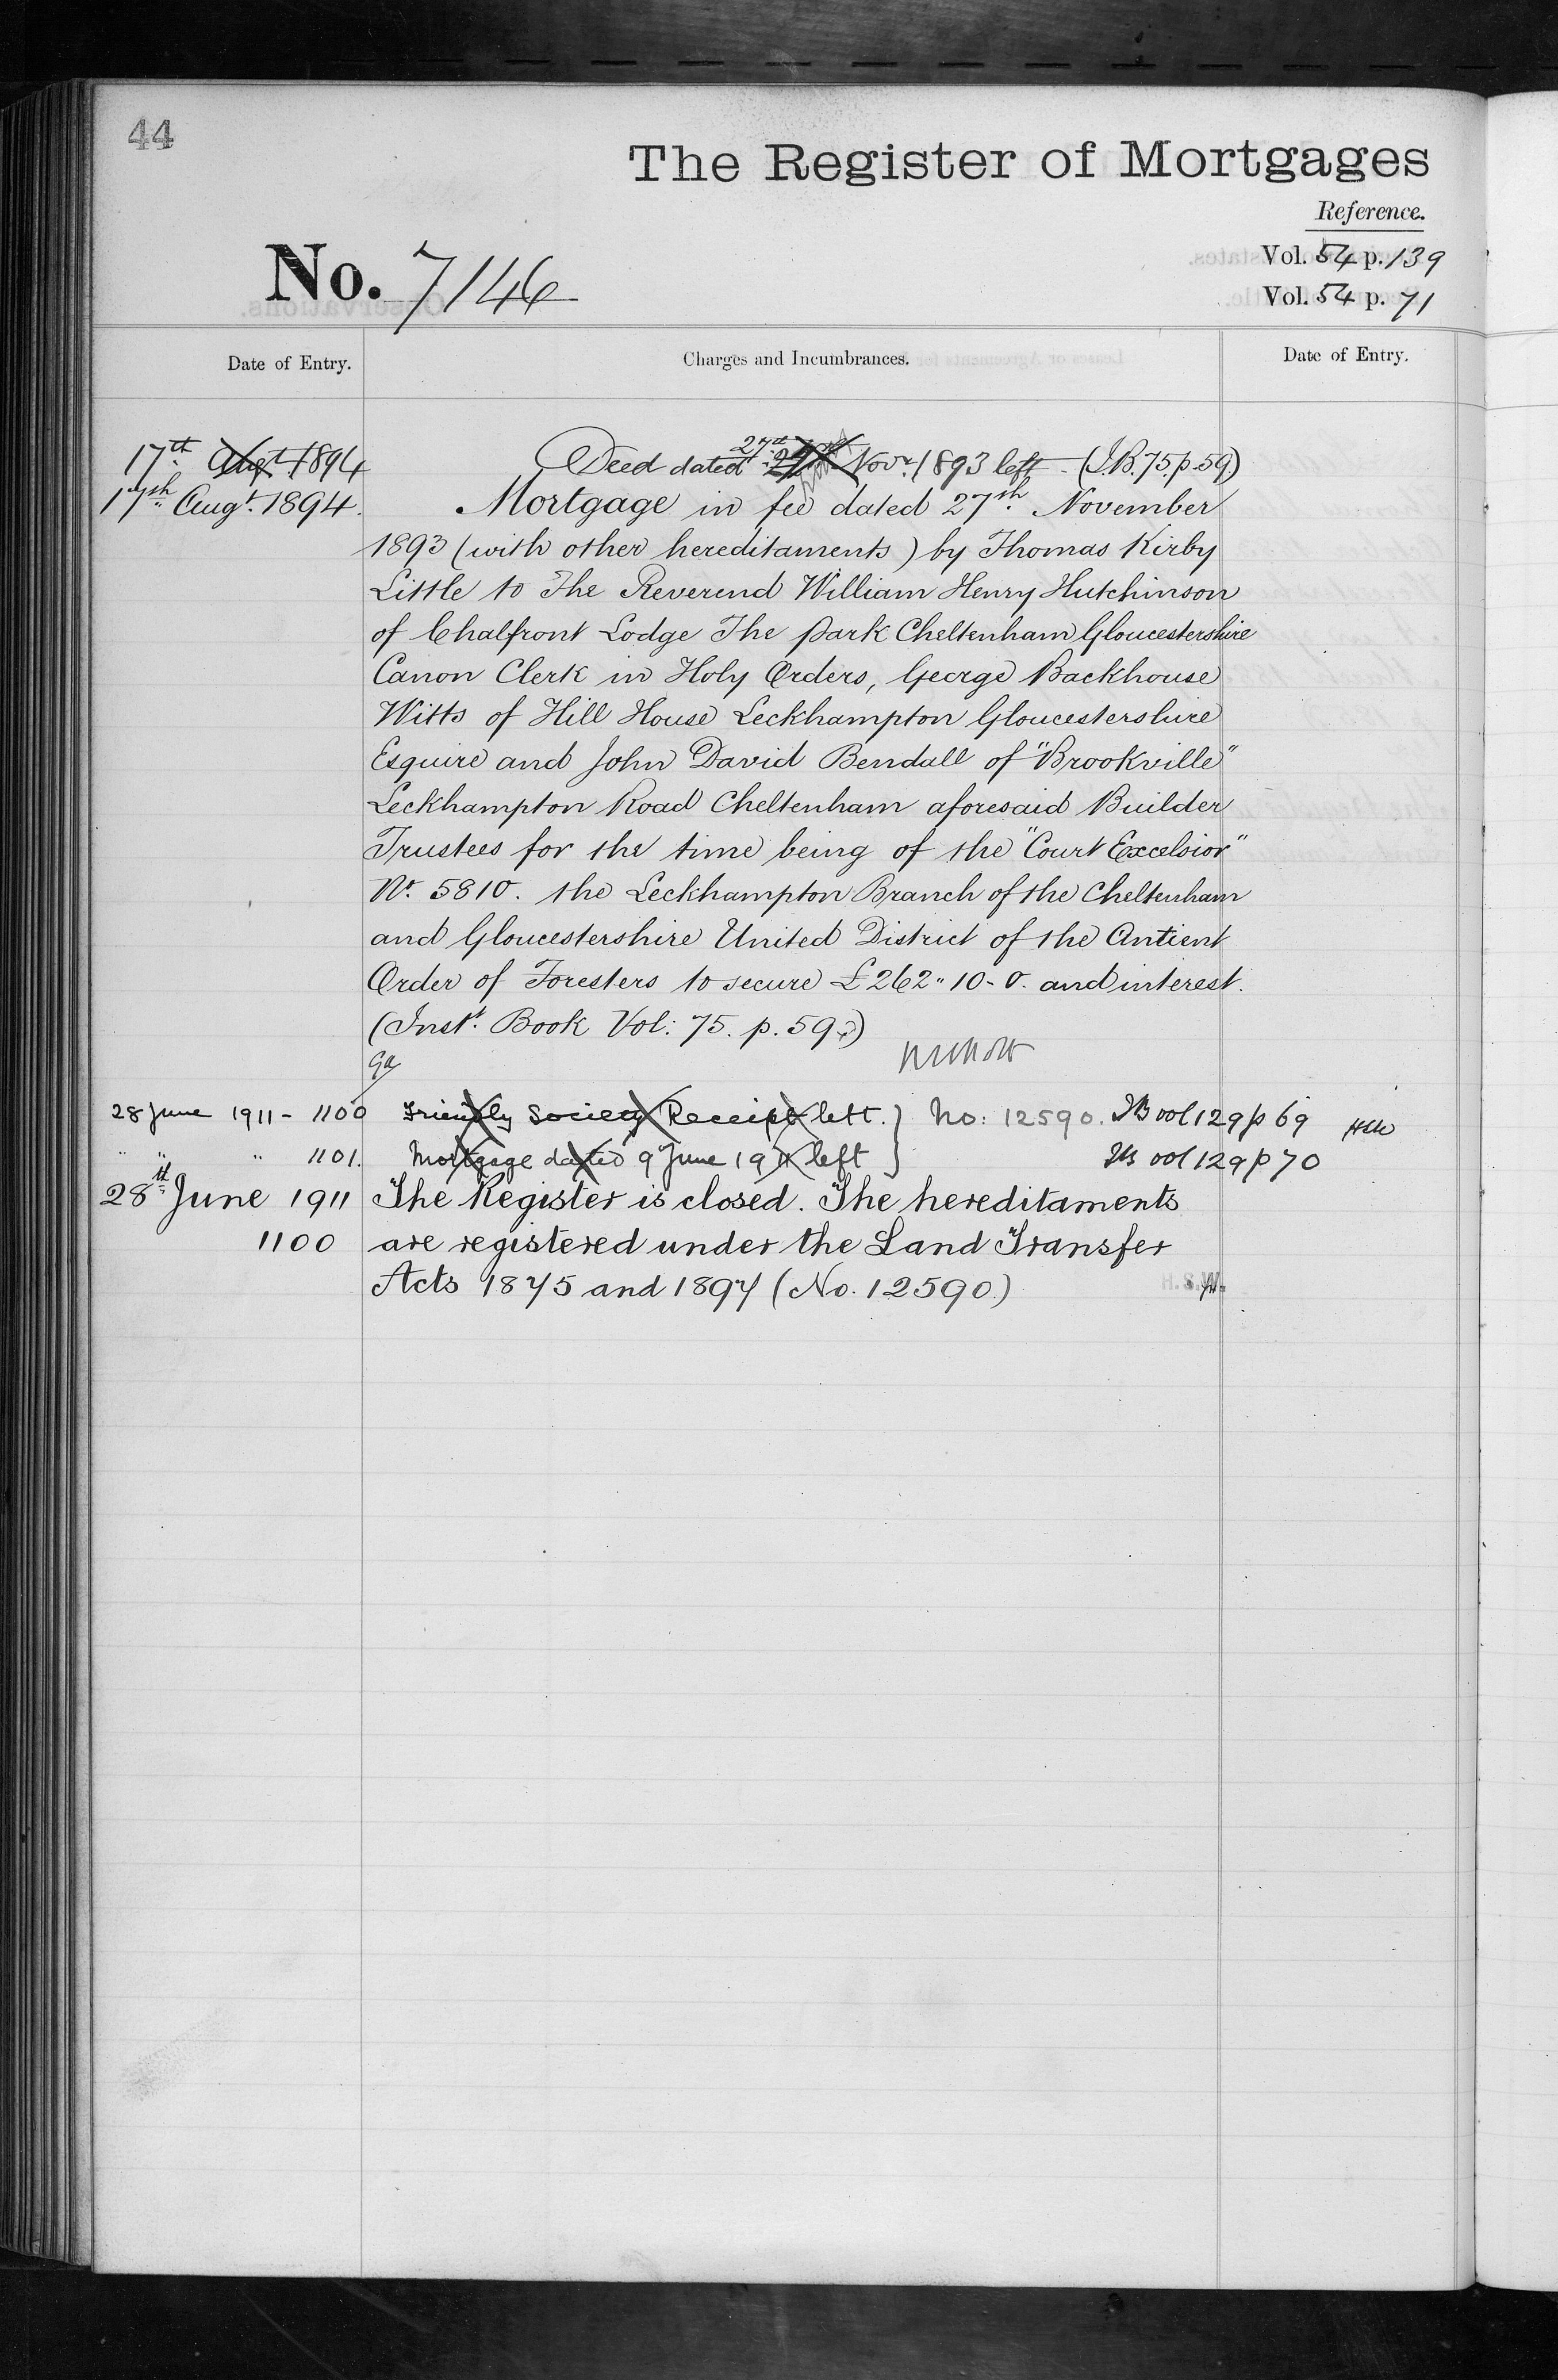 44
The Register of Mortgages
Reference.
No. 7146
Vol. 54 p. 139
Vol. 54 p. 71
Date of Entry.
Charges and Incumbrances.
Date of Entry.
17th Augt 1894 Deed dated 27th Novr. 1893 left (I.B. 75. p. 59)
17th Augt. 1894. Mortgage in fee dated 27th November
1893 (with other hereditaments) by Thomas Kirby
Little to The Reverend William Henry Hutchinson
of Chalfront Lodge The Park Cheltenham Gloucestershire
Canon Clerk in Holy Orders, George Backhouse
Witts of Hill House Leckhampton Gloucestershire
Esquire and John David Bendall of "Brookville"
Leckhampton Road Cheltenham aforesaid Builder
Trustees for the time being of the "Court Excelsior"
No. 5810. the Leckhampton Branch of the Cheltenham
and Gloucestershire United District of the Antient
Order of Foresters to secure £262"10-0. and interest.
(Inst. Book Vol: 75. p. 59.)
28 June 1911 - 1100 Friendly Society Receipt left. } No: 12590. IB vol 129 p 69
" " " 1101. Mortgage dated 9 June 1911 left } IB vol 129 p 70
28th June 1911 The Register is closed. The hereditaments
1100 are registered under the Land Transfer
Acts 1875 and 1897 (No. 12590.)
H.S.W.